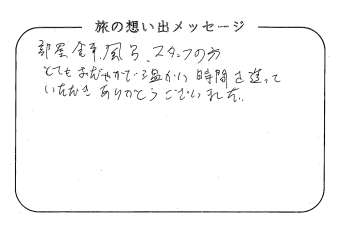 旅の想い出メッセージ
部屋、食事、風呂、スタッフの方
とてもおだやかで温かい時間を造って
いただきありがとうございました。